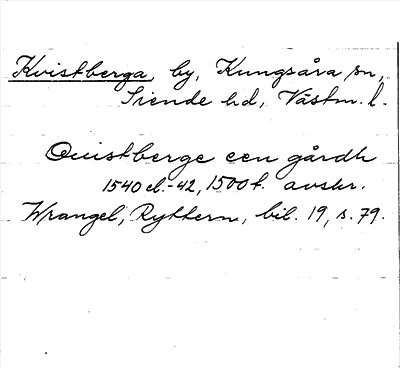 Kvistberga, by, Kungsåra sn,
Siende hd, Västm. l.
Quistberge een gårdh
1540 el.-42, 1500t. avskr.
Wrangel, Ryttern, bil. 19, s. 79.